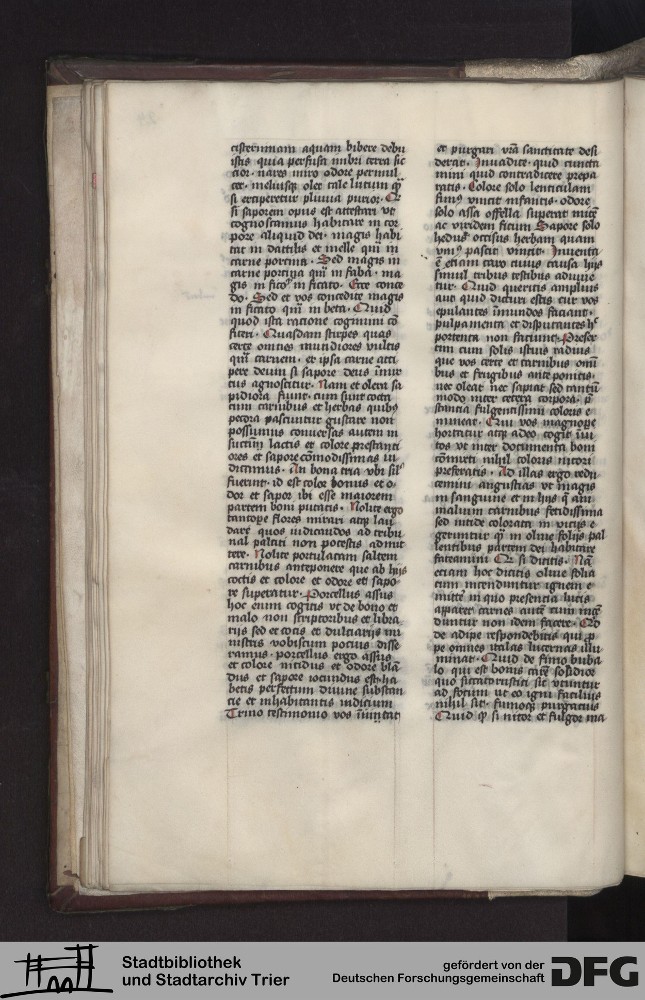 cisterninam aquam bibere debu
istis quia perfusa imbri terra sic
cior · nares miro odore permul
cet · meliusque olet tale lutum qͣ
si exciperetur pluvia purior · Et
si saporem opus est attestari vt
cognoscamus habitare in cor
pore aliquid dei · magis habi
tat in dattilis et melle qͣm in
carne porcina · Sed magis in
carne porcina qͣm in faba · ma
gis in fico qͣ in ficato · Ecce conce
do · Sed et vos concedite magis
in ficato qͣm in beta · Quid
quod ista racione cogimini cō
fiteri · Quasdam stirpes quas
certe omnes mundiores vultis
qͣm carnem · et ipsa carne acci
pere deum si sapore deus ūmix
tus agnoscitur · Nam et olera sa
pidiora fiunt · cum sunt cocta
cum carnibus et herbas quibꝫ
pecora pascuntur gustare non
possumus conuersas autem in
succum lactis et colore prestanci
ores et sapore cōmodissimas iu
dicamus · An bona tria vbi sil̓
fuerint · id est color bonus et o
dor et sapor ibi esse maiorem
partem boni putatis · Nolite ergo
tantope flores mirari atqꝫ lau
dare quos iudicandos ad tribu
nal palati non potestis admit
tere · Nolite portulacam saltem
carnibus anteponere que ab hijs
coctis et colore et odore et sapo
re superatur · Porcellus assus
hoc enim cogitis vt de bono et
malo non scriptoribus et libra
rijs sed et cocis et dulciarijs mi
nistris vobiscum pocius disse
ramus · porcellus ergo assus
et colore nitidus et odore blā
dus et sapore iocundus est · ha
betis perfectum diuine substan
cie et inhabitantis indicium
Trino testimonio vos inuitat
et purgari vrā sanctitate desi
derat · Inuadite · quid cuncta
mini quid contradicere prepa
ratis · Colore solo lenticulam
fimꝰ vincit infantis · odore
solo assa offella superat mitē
ac viridem ficum Sapore solo
hedus occisus herbam quam
viuꝰ pascit vincit · Inuenta
ē etiam caro cuius causa hijs
simul tribus testibus adiuue
tur · Quid queritis amplius
aut quid dicturi estis cur vos
epulantes īmundos faciant ·
pulpamenta et disputantes hͨ
portenta non faciunt · Preser
tim cum solis istius radius
que vos certe et carnibus omī
bus et frugibus anteponitis ·
nec oleat nec sapiat sed tantū
modo inter cetera corpora · p̄
stancia fulgentissimi coloris e
mineat · Qui vos magnope
hortatur atqꝫ adeo cogit īui
tos vt inter documenta boni
cōmixti nihil coloris nitori
preferatis · Ad illas ergo redu
cemini angustias vt magis
in sanguine et in hijs q̄ ani
malium carnibus fetidissima
sed nitide colorata in vicijs e
geruntur qͣ in oliue folijs pal
lentibus partem dei habitare
fateamini Et si dicitis · Nā
eciam hoc dicitis oliue folia
cum incenduntur ignem e
mitte in quo presencia lucis
apparet carnes autē cum incē
duntur non idem facere · Qͥd
de adipe respondebitis qui ꝓ
pe omnes italas lucernas illu
minat · Quid de fimo buba
lo qui est bouis carē solidior
quo siccato rustici sic vtuntur
ad focum vt eo igni facilius
nihil sit · fumoqꝫ purgacius
Quid ꝙ si nitor et fulgor ma
Stadtbibliothek
und Stadtarchiv Trier
gefördert von der
Deutschen Forschungsgemeinschaft
DFG